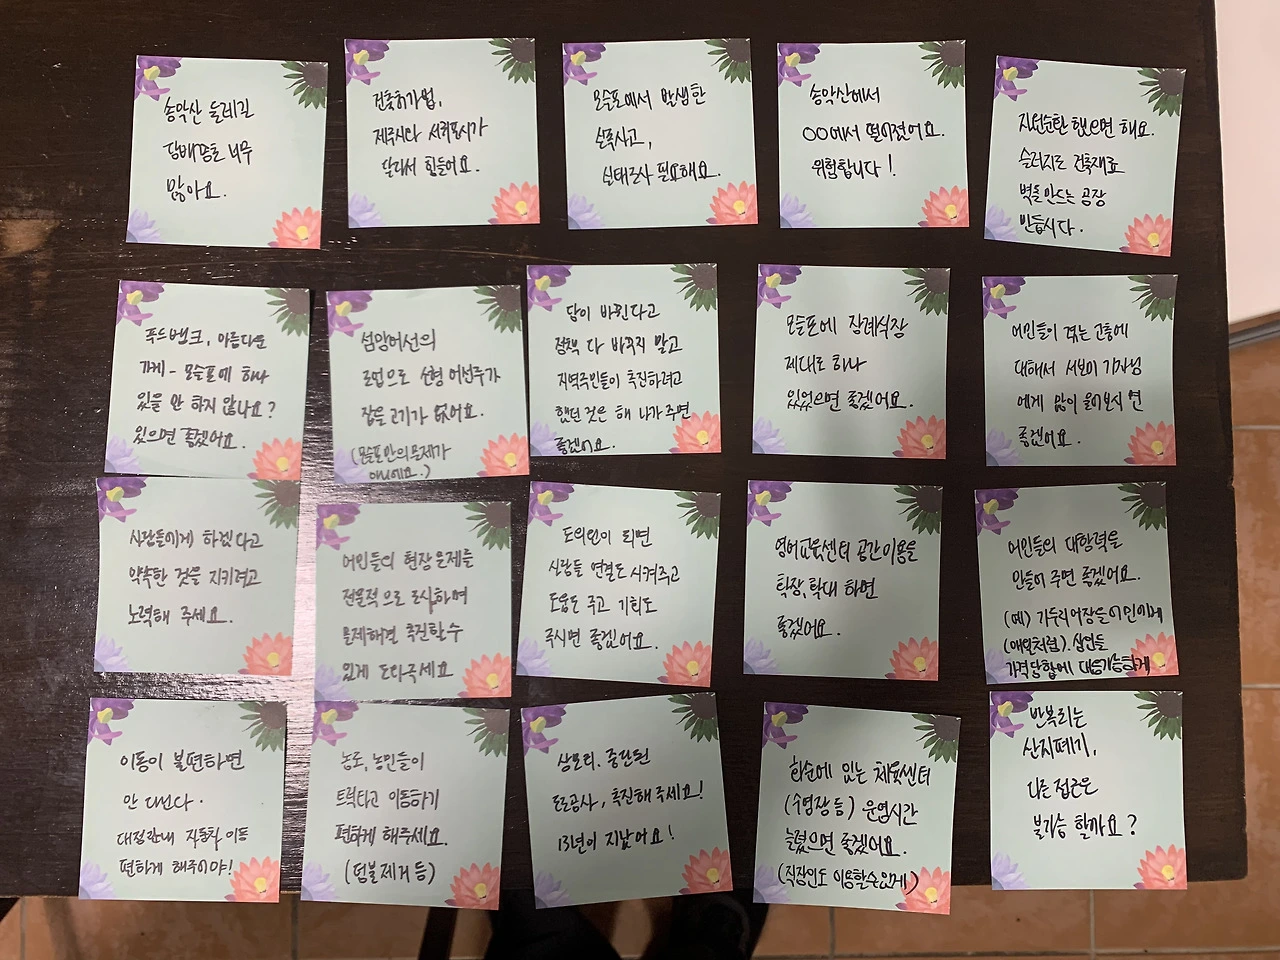 송악산 둘레길
담배꽁초 너무
많아요.
건축허가법,
제주시랑 서귀포시가
달라서 힘들어요.
모슬포에서 발생한
선폭사고,
실태조사 필요해요.
송악산에서
OO에서 떨어졌어요.
위험합니다!
자원순환 했으면 해요.
슬러지로 건축재료
벽돌 만드는 공장
만듭시다.
푸드뱅크, 아름다운
가게 - 모슬포에 하나
있을 만 하지 않나요?
있으면 좋겠어요.
쌍끌이어선의
조업으로 선형 어선주가
잡을 고기가 없어요.
(모슬포만의 문제가
아니에요.)
당이 바뀐다고
정책 다 바꾸지 말고
지역주민들이 촉진하려고
했던 것은 해 나가 주면
좋겠어요.
모슬포에 장례식장
제대로 하나
있었으면 좋겠어요.
어민들이 겪는 고충에
대해서 서보미 기자님
에게 많이 물어보시면
좋겠어요.
사람들에게 하겠다고
약속한 것을 지키려고
노력해 주세요.
어민들의 현장문제를
전문적으로 조사하며
문제해결 촉진할 수
있게 도와주세요
도의원이 되면
사람들 연결도 시켜주고
도움도 주고 기회도
주시면 좋겠어요.
영어교육센터 공간이용을
확장, 확대 하면
좋겠어요.
어민들의 대항력을
만들어 주면 좋겠어요.
(예) 가두리어장들 어민에게
(애월처럼). 상인들
가격담합에 대응가능하게
이동이 불편하면
안 다닌다.
대정관내 자동차 이동
편하게 해주어야!
농로, 농민들이
트럭타고 이동하기
편하게 해주세요.
(덤불제거 등)
상모리. 중단된
도로공사, 촉진해 주세요!
13년이 지났어요!
화순에 있는 체육센터
(수영장 등) 운영시간
늘렸으면 좋겠어요.
(직장인도 이용할수있게)
반복되는
산지폐기,
다른 접근은
불가능 할까요?